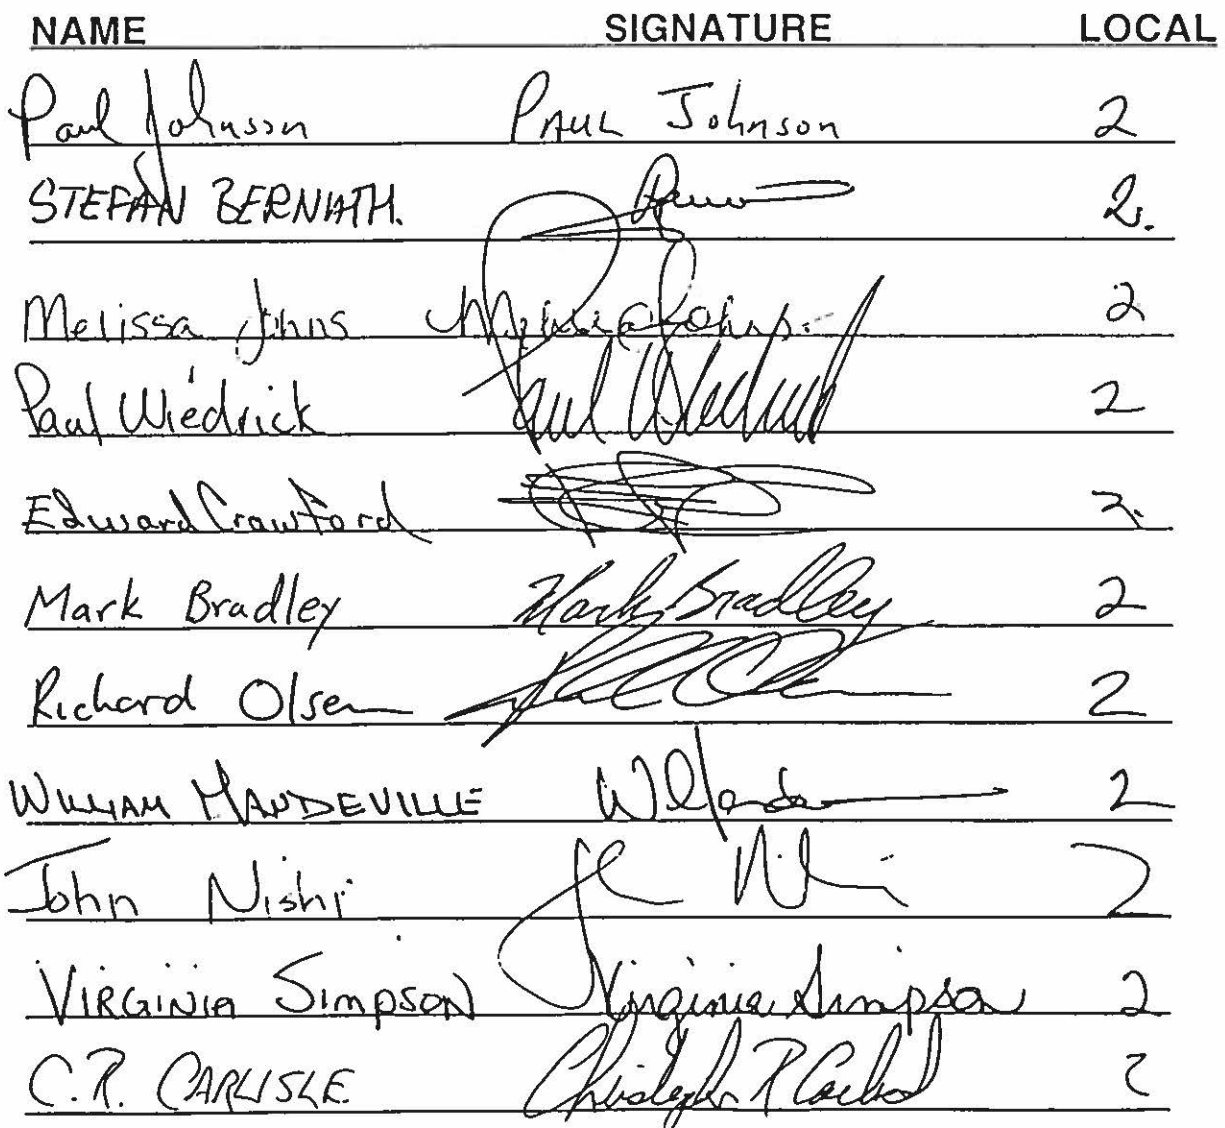 NAME SIGNATURE LOCAL
Paul Johnson PAUL Johnson 2
STEFAN BERNIATH. 2.
Melissa Johns Melissa Johns. 2
Paul Wiedrick Paul Wiedrick 2
Edward Crawford 2.
Mark Bradley Mark Bradley 2
Richard Olsen 2
WILLIAM MANDEVILLE 2
John Nishi 2
VIRGINIA SIMPSON Virginia Simpson 2
C.R. CARLISLE Christopher R 2